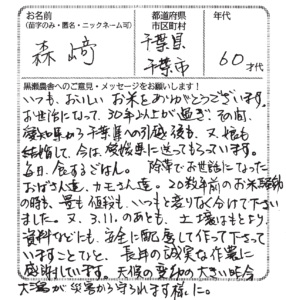 お名前
(苗字のみ・匿名・ニックネーム可)
都道府県
市区町村
年代
森﨑
千葉県
千葉市
60才代
黒瀬農舎へのご意見・メッセージをお願いします!
いつも、おいしいお米をありがとうございます。
お世話になって、30年以上が過ぎ、その間、
愛知県から千葉県への引越後も、又、娘も
結婚して、今は、愛媛県に送ってもらっています。
毎日、食するごはん。除草でお世話になった
おばさん達、カモさん達。20数年前のお米騒動
の時も、量も値段も、いつもと変りなく分けて下さい
ました。又、3.11.のあとも、土壌はもとより、
資料などにも、安全に配慮して作って下さって
いますことなど、長年の誠実な作農に
感謝しています。天候の変動の大きい昨今
大潟が災害から守られます様に。